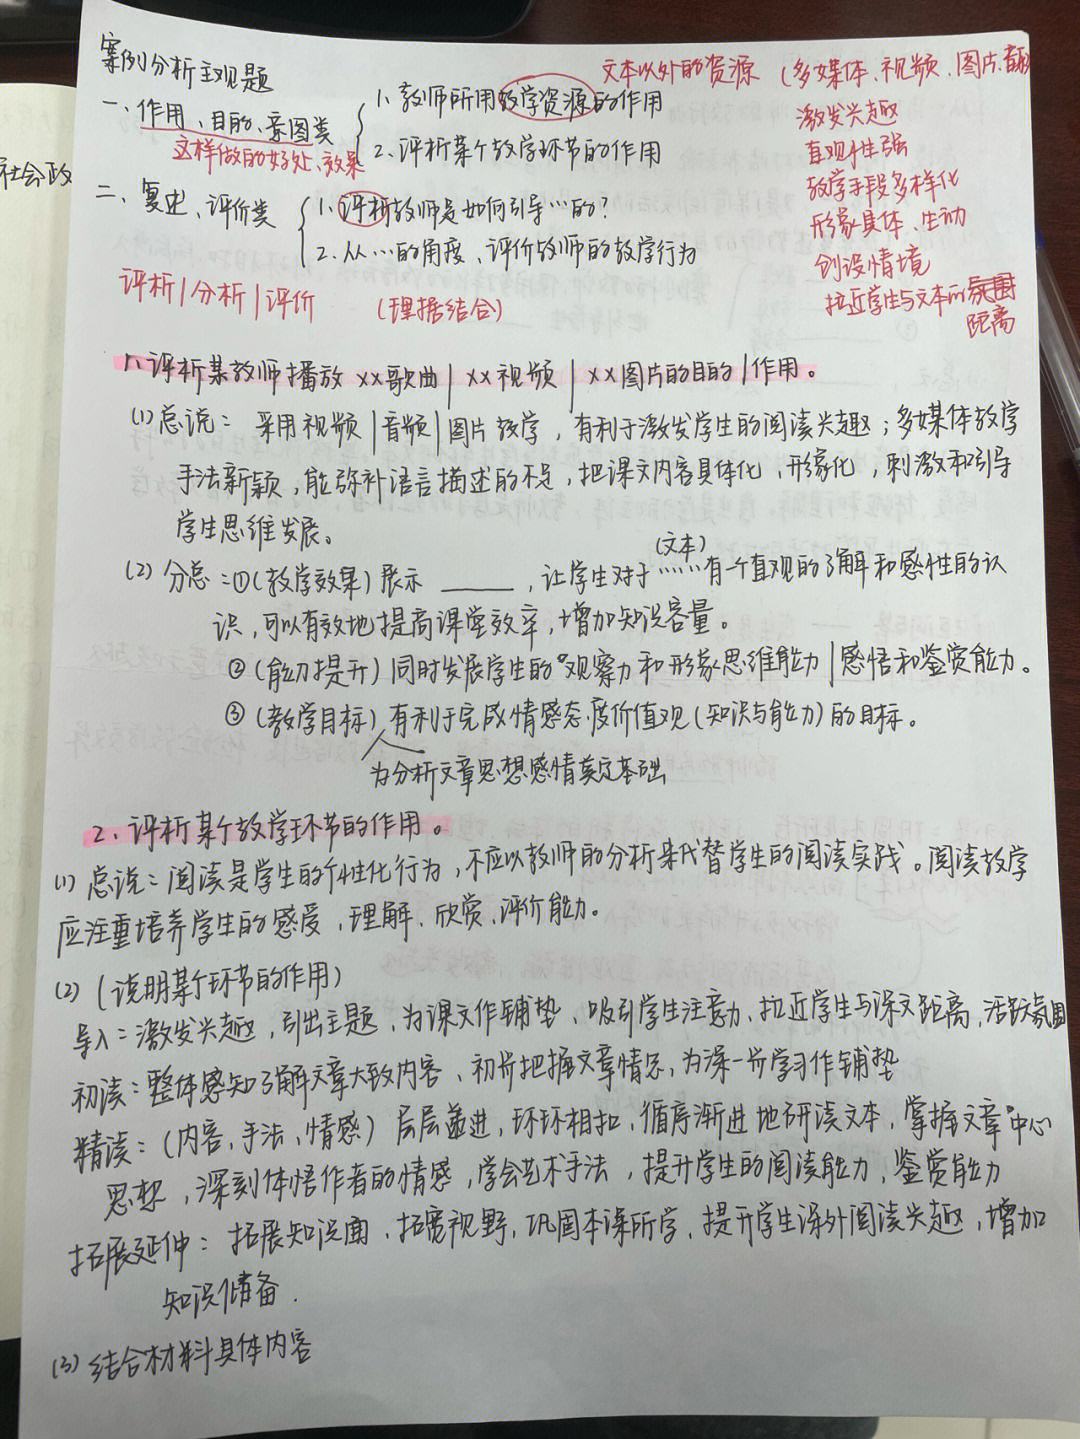 案例分析主观题
文本以外的资源 (多媒体、视频、图片、音
一、作用、目的、意图类
1. 教师所用教学资源的作用
2. 评析某个教学环节的作用
这样做的好处、效果
激发兴趣
直观性强
教学手段多样化
形象具体、生动
创设情境
拉近学生与文本的
距离
社会政
二、复述、评价类
1. 评析教师是如何引导…的?
2. 从…的角度、评价教师的教学行为
评析|分析|评价 (理据结合)
1、评析某教师播放 xx歌曲| xx视频 | xx图片的目的|作用。
(1) 总说: 采用视频|音频|图片教学, 有利于激发学生的阅读兴趣; 多媒体教学
手法新颖, 能弥补语言描述的不足, 把课文内容具体化、形象化, 刺激和引导
学生思维发展。
(2) 分总: ①(教学效果) 展示 ____, 让学生对于……(文本)有一个直观的了解和感性的认
识, 可以有效地提高课堂效率, 增加知识容量。
②(能力提升) 同时发展学生的观察力和形象思维能力|感悟和鉴赏能力。
③(教学目标) 有利于完成情感态度价值观(知识与能力)的目标。
为分析文章思想感情奠定基础
2、评析某个教学环节的作用。
(1) 总说: 阅读是学生的个性化行为, 不应以教师的分析来代替学生的阅读实践。阅读教学
应注重培养学生的感受, 理解、欣赏、评价能力。
(2) (说明某个环节的作用)
导入: 激发兴趣, 引出主题, 为课文作铺垫、吸引学生注意力、拉近学生与课文距离, 活跃氛围
初读: 整体感知了解文章大致内容、初步把握文章情感, 为深一步学习作铺垫
精读: (内容、手法、情感) 层层递进, 环环相扣, 循序渐进地研读文本, 掌握文章中心
思想, 深刻体悟作者的情感, 学会艺术手法, 提升学生的阅读能力, 鉴赏能力
拓展延伸: 拓展知识面、拓宽视野, 巩固本课所学, 提升学生课外阅读兴趣, 增加
知识储备.
(3) 结合材料具体内容